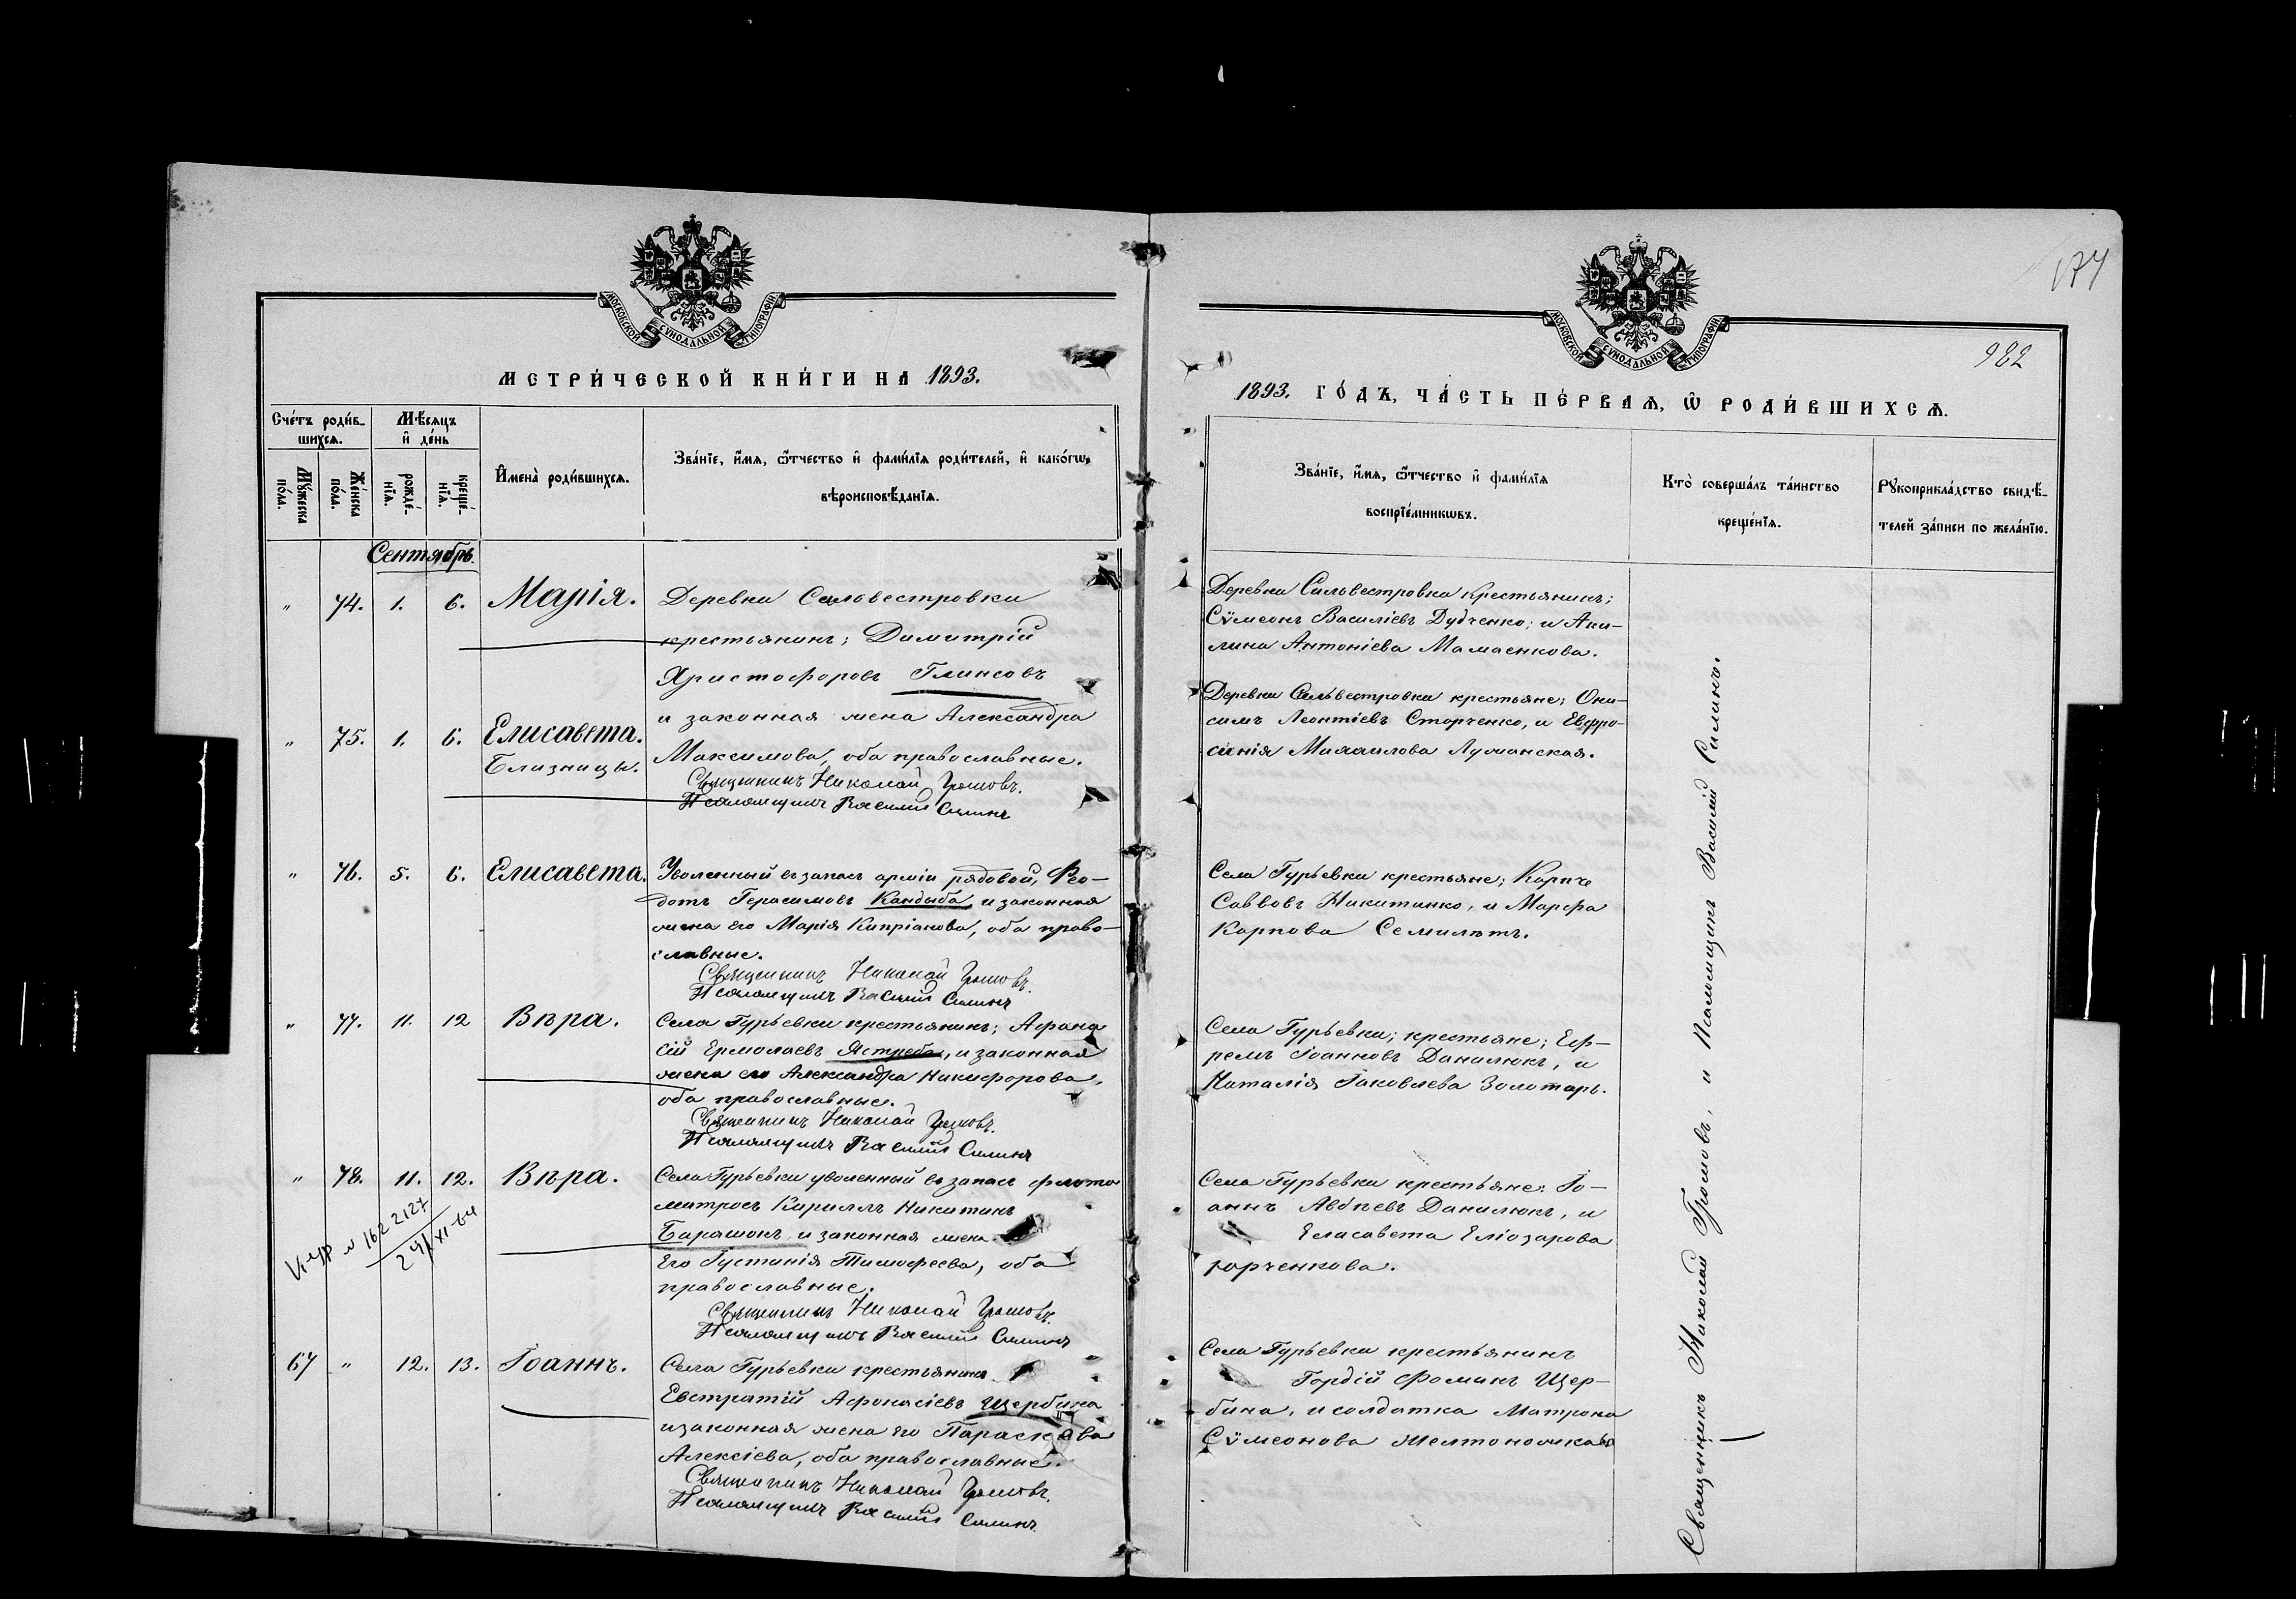 МОСКОВСКОЙ СУНОДАЛЬНОЙ ТИПОГРАФІИ
МЕТРИ́ЧЕСКОЙ КНИ́ГИ НА 1893.
Сче́тъ роди́в-
шихсѧ.
Мѣ́сѧцъ
и҆ де́нь
Мꙋ́жеска
по́ла.
Же́нска
по́ла.
рожде́-
нїѧ.
креще́-
нїѧ.
И҆мена̀ роди́вшихсѧ.
Зва́нїе, и҆́мѧ, ѻ҆́тчество и҆ фами́лїѧ роди́телей, и҆ како́гѡ
вѣроисповѣ́данїѧ.
Сентябрь.
" 74. 1. 6. Марія.
Деревни Сильвестровки
крестьянинъ; Димитрій
Христофоровъ Глинсовъ
и законная жена Александра
Максимова, оба православные.
Священникъ Николай Громовъ.
Псаломщикъ Василий Силинъ
" 75. 1. 6. Елисавета.
Близницы.
" 76. 5. 6. Елисавета.
Уволенный въ запасъ арміи рядовой, Ѳео-
дотъ Герасимовъ Кандыба, и законная
жена его Марія Кипріанова, оба право-
славные.
Священникъ Николай Громовъ.
Псаломщикъ Василий Силинъ
" 77. 11. 12 Вѣра.
Села Гурьевки крестьянинъ; Афана
сій Ермолаевъ Ястреба, и законная
жена его Александра Никифорова,
оба православные.
Священникъ Николай Громовъ.
Псаломщикъ Василий Силинъ
" 78. 11. 12. Вѣра.
Села Гурьевки уволенный въ запасъ флота
матросъ Кириллъ Никитинъ
Барашокъ, и законная жена
Его Іустинія Тимофеева, оба
православные.
Священникъ Николай Громовъ.
Псаломщикъ Василий Силинъ
N 162 2127
24/XI-64
67 " 12. 13. Іоаннъ.
Села Гурьевки крестьянинъ
Евстратій Афонасіевъ Щербина
и законная жена его Параскева
Алексіева, оба православные.
Священникъ Николай Громовъ.
Псаломщикъ Василий Силинъ.
174
МОСКОВСКОЙ СУНОДАЛЬНОЙ ТИПОГРАФІИ
982
1893. ГО́ДЪ, ЧА́СТЬ ПЕ́РВАѦ, Ѡ҆ РОДИ́ВШИХСѦ.
Зва́нїе, и҆́мѧ, ѻ҆́тчество и҆ фами́лїѧ
воспрїе́мникѡвъ.
Кто̀ соверша́лъ та́инство
креще́нїѧ.
Рꙋкоприкла́дство свидѣ́-
телей за́писи по жела́нїю.
Деревни Сильвестровки крестьянинъ;
Сѵмеонъ Василіевъ Дудченко; и Аки-
лина Антоніева Мамаенкова.
Деревни Сильвестровки крестьяне; Они-
симъ Леонтіевъ Сторченко, и Евфро-
синія Михаилова Луманская.
Села Гурьевки крестьяне; Карпъ
Саввовъ Никитенко, и Марфа
Карпова Семилѣтъ.
Села Гурьевки; крестьяне; Еф-
ремъ Іоанновъ Данилюкъ, и
Наталія Іаковлева Золотарь.
Села Гурьевки крестьяне: Іо-
аннъ Авдѣевъ Данилюкъ, и
Елисавета Еліозарова
Юрченкова.
Села Гурьевки крестьянинъ
Гордій Фоминъ Щер-
бина, и солдатка Матрона
Сѵмеонова Желтоножкова
Священникъ Николай Громовъ, и Псаломщикъ Василій Силинъ.